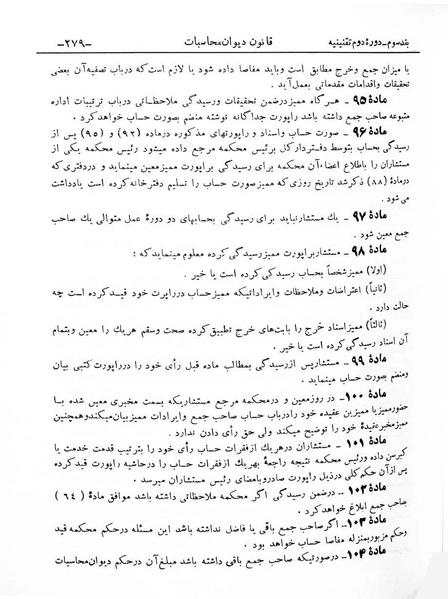 بند سوم ـ دورهٔ دوم تقنینیه
قانون دیوان محاسبات
ـ ۲۷۹ ـ
با میزان جمع وخرج مطابق است وباید مفاصا داده شود یا لازم است که درباب تصفیه آن بعضی
تحقیقات واقدامات مقدماتی بعمل آید .
مادهٔ ۹۵ ـ هرگاه ممیز درضمن تحقیقات ورسیدگی ملاحظاتی درباب ترتیبات اداره
متبوعه صاحب جمع داشته باشد راپورت جداگانه نوشته منضم بصورت حساب خواهد کرد .
مادهٔ ۹۶ ـ صورت حساب واسناد و راپورتهای مذکوره درماده (۹۲) و (۹۵) پس از
رسیدگی بحساب بتوسط دفتردارکل برئیس محکمه مرجع داده میشود رئیس محکمه یکی از
مستشاران را باطلاع اعضاء آن محکمه برای رسیدگی براپورت ممیز معین مینماید و دردفتری که
درمادهٔ (۸۸) ذکر شد تاریخ روزی که ممیز صورت حساب را تسلیم دفترخانه کرده است یادداشت
می شود .
مادهٔ ۹۷ ـ یك مستشار نباید برای رسیدگی بحسابهای دو دورهٔ عمل متوالی یك صاحب
جمع معین شود .
مادهٔ ۹۸ ـ مستشار براپورت ممیز رسیدگی کرده معلوم مینماید که :
(اولا) ممیز شخصاً بحساب رسیدگی کرده است یا خیر .
(ثانیاً) اعتراضات وملاحظات وایراداتیکه ممیز حساب درراپرت خود قید کرده است چه
حالت دارد .
(ثالثاً) ممیز اسناد خرج را بابتهای خرج تطبیق کرده صحت وسقم هریك را معین وبتمام
آن اسناد رسیدگی کرده است یا خیر .
مادهٔ ۹۹ ـ مستشار پس ازرسیدگی بمطالب ماده قبل رأی خود را درراپورت کتبی بیان
ومنضم بصورت حساب مینماید .
مادهٔ ۱۰۰ ـ در روز معین و درمحکمه مرجع مستشاریکه بسمت مخبری معین شده با
حضور ممیز یا ممیزین عقیده خود رادرباب حساب صاحب جمع وایرادات ممیز بیان میکند وهمچنین
ممیز مخبر عقیدهٔ خود را توضیح میکند ولی حق رأی دادن ندارد .
مادهٔ ۱۰۱ ـ مستشاران درهریك ازفقرات حساب رأی خود را بترتیب قدمت خدمت یا
کبرسن داده ورئیس محکمه نتیجه راجعهٔ بهریك ازفقرات حساب را درحاشیه راپورت قید کرده
پس ازآن حکم کلی درذیل راپورت صادر وبامضای رئیس مستشاران میرسد .
مادهٔ ۱۰۲ ـ درضمن رسیدگی اگر محکمه ملاحظاتی داشته باشد موافق مادهٔ ( ۶۴ )
صاحب جمع ابلاغ خواهد کرد .
مادهٔ ۱۰۳ ـ اگر صاحب جمع باقی یا فاضل نداشته باشد این مسئله درحکم محکمه قید
وحکم مزبور بمنزله مفاصا حساب خواهد بود .
مادهٔ ۱۰۴ ـ درصورتیکه صاحب جمع باقی داشته باشد مبلغ آن درحکم دیوان محاسبات